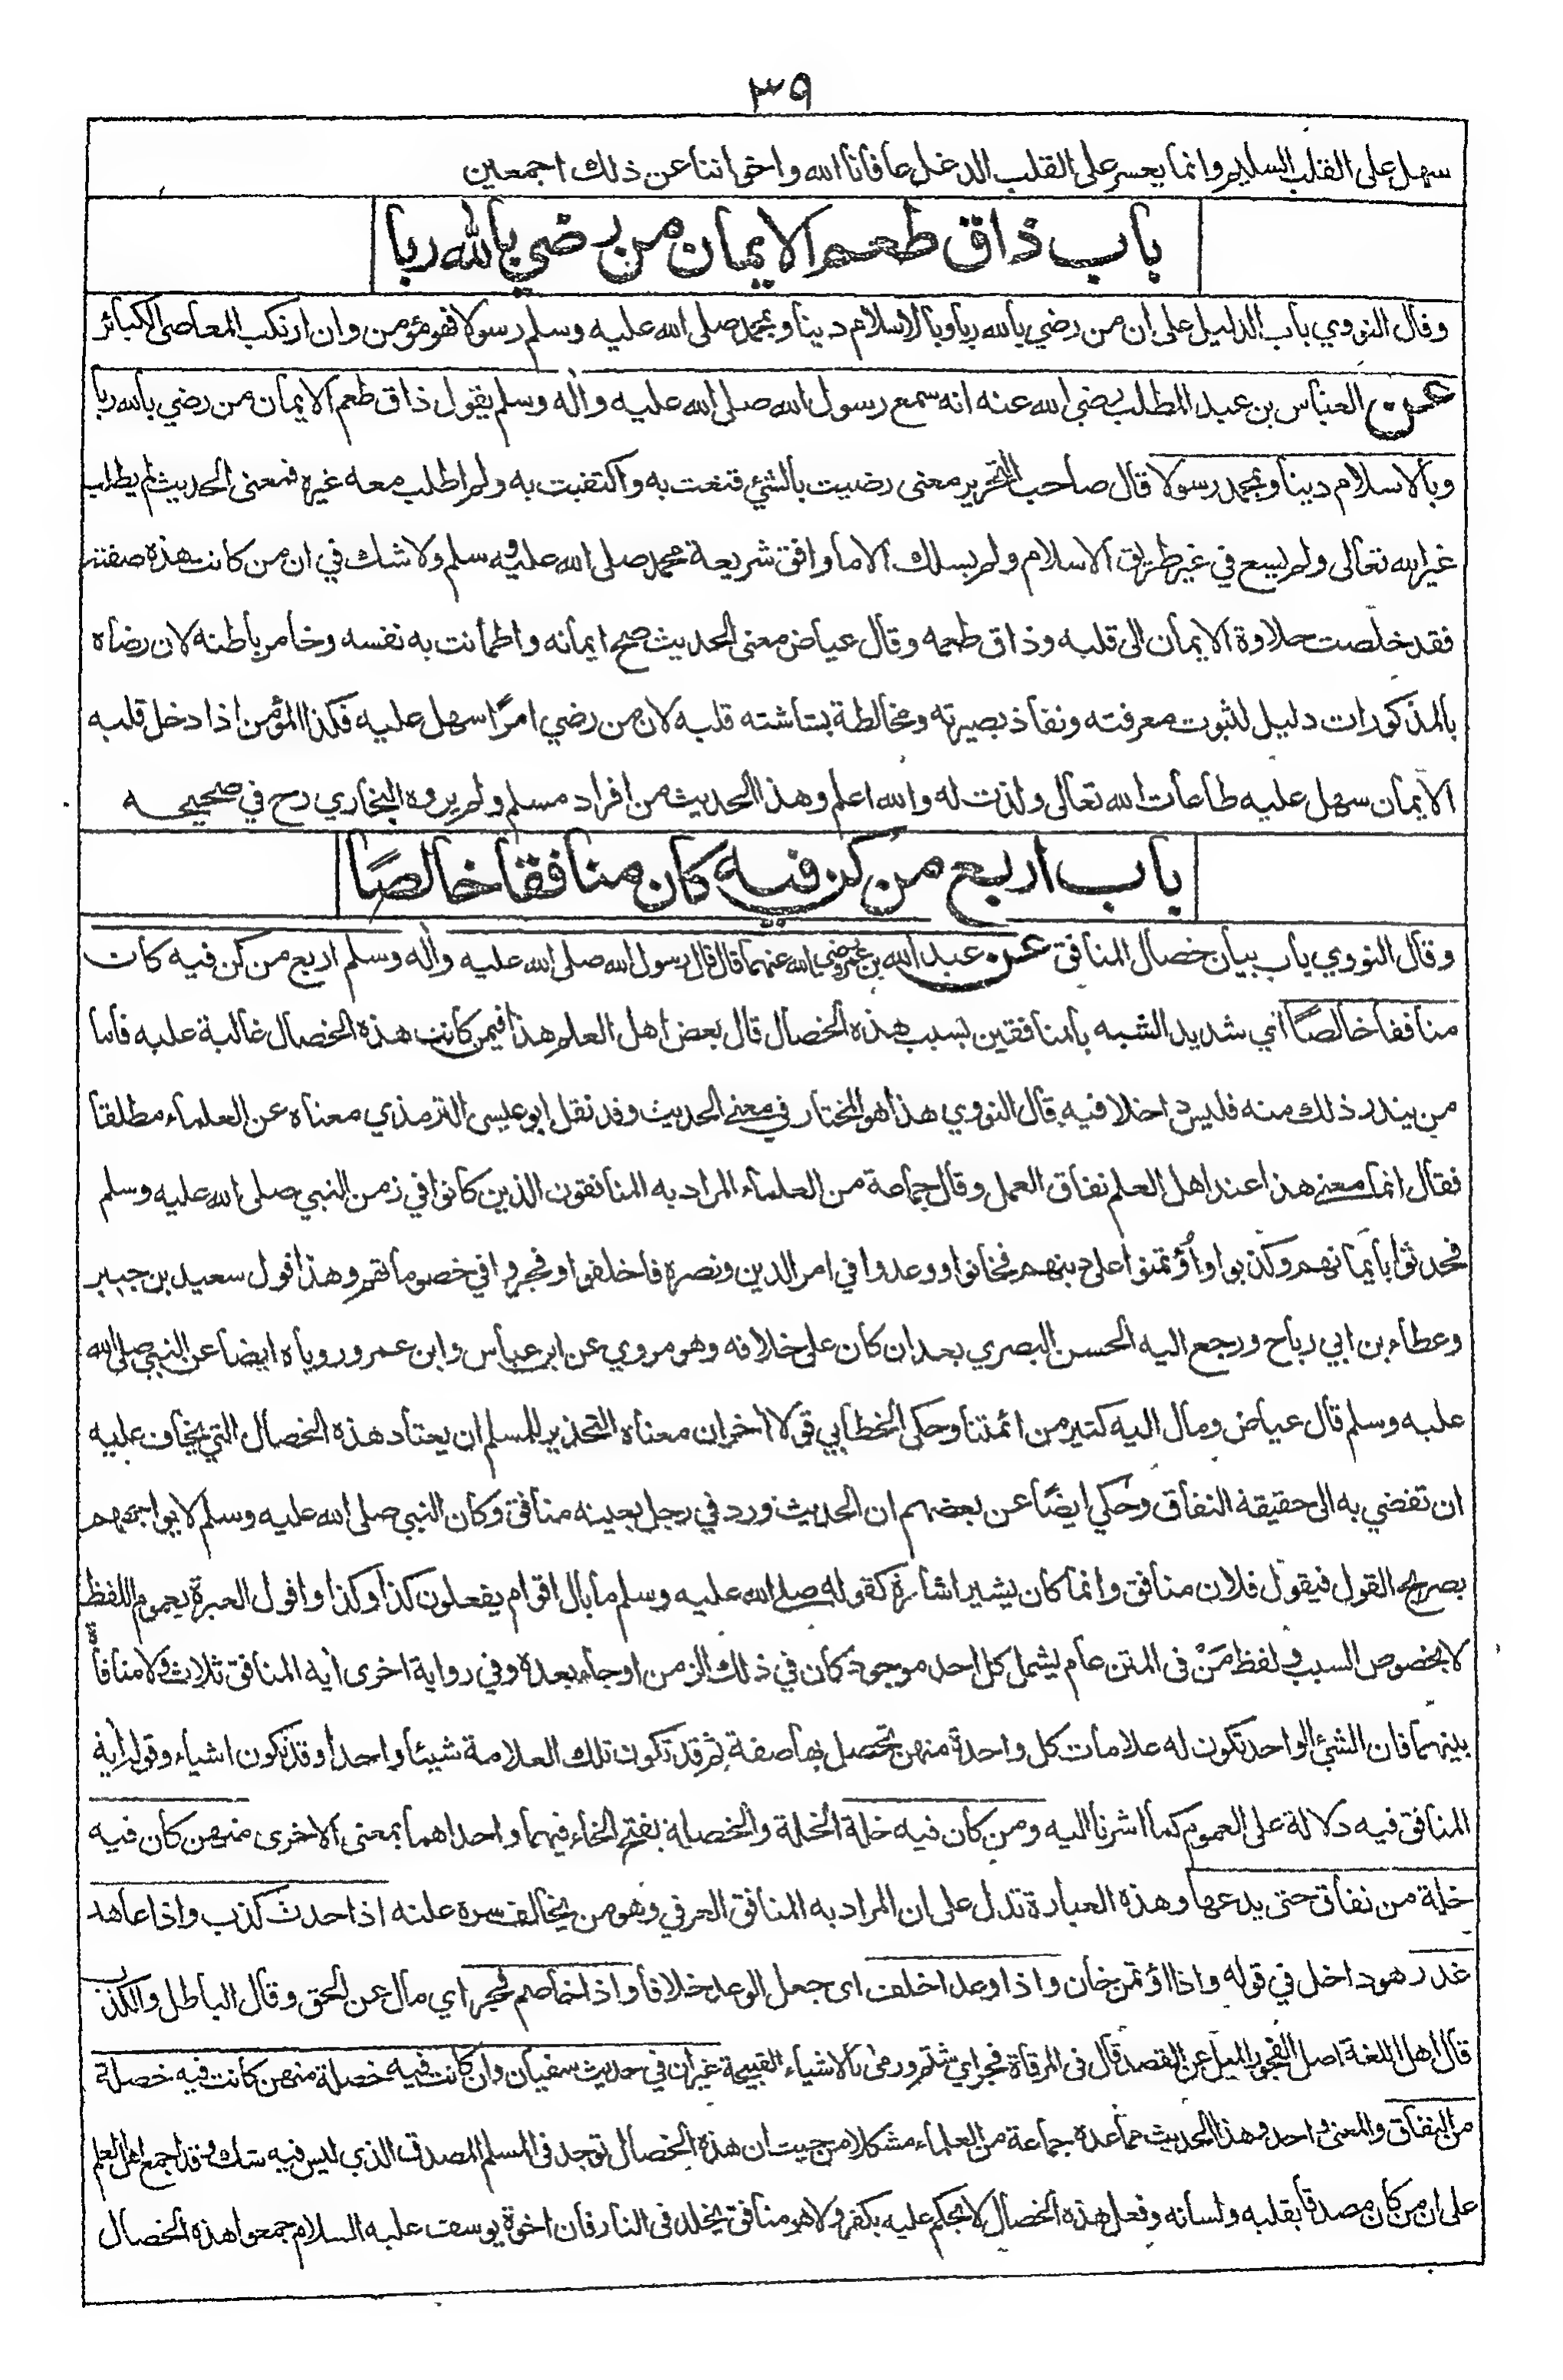 ٣٩
سهل على القلب السليم وانما يعسر على القلب الدغل عافانا الله واخواننا عن ذلك اجمعين
باب ذاق طعم الايمان من رضي بالله ربا
وقال النووي باب الدليل على ان من رضي بالله ربا وبالاسلام دينا وبمحمد صلى الله عليه وسلم رسولا فهو مؤمن وان ارتكب المعاصى الكبائر
عن العباس بن عبد المطلب رضي الله عنه انه سمع رسول الله صلى الله عليه واله وسلم يقول ذاق طعم الايمان من رضي بالله ربا
وبالاسلام دينا وبمحمد رسولا قال صاحب التحرير معنى رضيت بالشئ قنعت به واكتفيت به ولم اطلب معه غيره فمعنى الحديث لم يطلب
غير الله تعالى ولم يسع في غير طريق الاسلام ولم يسلك الا ما وافق شريعة محمد صلى الله عليه وسلم ولا شك في ان من كانت هذه صفته
فقد خلصت حلاوة الايمان الى قلبه وذاق طعمه وقال عياض معنى الحديث صح ايمانه واطمأنت به نفسه وخامر باطنه لان رضاه
بالمذكورات دليل لثبوت معرفته ونفاذ بصيرته ومخالطة بشاشته قلبه لان من رضي امرًا سهل عليه فكذا المؤمن اذا دخل قلبه
الايمان سهل عليه طاعات الله تعالى ولذت له والله اعلم وهذا الحديث من افراد مسلم ولم يروه البخاري رح في صحيحه
باب اربع من كن فيه كان منافقا خالصًا
وقال النووي باب بيان خصال المنافق عن عبد الله بن عمرو رضي الله عنهما قال قال رسول الله صلى الله عليه واله وسلم اربع من كن فيه كان
منافقا خالصًا اي شديد الشبه بالمنافقين بسبب هذه الخصال قال بعض اهل العلم هذا فيمن كانت هذه الخصال غالبة عليه فاما
من يندر ذلك منه فليس داخلا فيه قال النووي هذا هو المختار في معنى الحديث وقد نقل ابو عيسى الترمذي معناه عن العلماء مطلقا
فقال انما معنى هذا عند اهل العلم نفاق العمل وقال جماعة من العلماء المراد به المنافقون الذين كانوا في زمن النبي صلى الله عليه وسلم
فحدثوا بايمانهم وكذبوا واؤتمنوا على دينهم فخانوا ووعدوا في امر الدين ونصره فاخلفوا وفجروا في خصوماتهم وهذا قول سعيد بن جبير
وعطاء بن ابي رباح ورجع اليه الحسن البصري بعد ان كان على خلافه وهو مروي عن ابن عباس وابن عمر وروياه ايضا عن النبي صلى الله
عليه وسلم قال عياض ومال اليه كثير من ائمتنا وحكى الخطابي قولا اخر ان معناه التحذير للمسلم ان يعتاد هذه الخصال التي يخاف عليه
ان تفضي به الى حقيقة النفاق وحكي ايضًا عن بعضهم ان الحديث ورد في رجل بعينه منافق وكان النبي صلى الله عليه وسلم لا يواجههم
بصريح القول فيقول فلان منافق وانما كان يشير اشارة كقوله صلى الله عليه وسلم ما بال اقوام يفعلون كذا وكذا واقول العبرة بعموم اللفظ
لا بخصوص السبب ولفظ مَنْ في المتن عام يشمل كل احد موجود كان في ذلك الزمن او جاء بعده وفي رواية اخرى اية المنافق ثلاث ولا منافاة
بينهما فان الشئ الواحد تكون له علامات كل واحدة منهن تحصل بها صفة ثم قد تكون تلك العلامة شيئا واحدا وقد تكون اشياء وقوله اية
المنافق فيه دلالة على العموم كما اشرنا اليه ومن كان فيه خلة الخلة والخصلة بفتح الخاء فيهما واحداهما بمعنى الاخرى منهن كان فيه
خلة من نفاق حتى يدعها وهذه العبارة تدل على ان المراد به المنافق العرفي وهو من يخالف سره علنه اذا حدث كذب واذا عاهد
غدر هو داخل في قوله واذا اؤتمن خان واذا وعد اخلف اى جعل الوعد خلافا واذا خاصم فجر اي مال عن الحق وقال الباطل والكذب
قال اهل اللغة اصل الفجور الميل عن القصد قال في المرقاة فجر اي شتم ورمى بالاشياء القبيحة غير ان في حديث سفيان وان كانت فيه خصلة منهن كانت فيه خصلة
من النفاق والمعنى واحد وهذا الحديث مما عده جماعة من العلماء مشكلا من حيث ان هذه الخصال توجد في المسلم المصدق الذي ليس فيه شك وقد اجمع اهل العلم
على ان من كان مصدقا بقلبه ولسانه وفعل هذه الخصال لا يحكم عليه بكفر ولا هو منافق يخلد في النار فان اخوة يوسف عليه السلام جمعوا هذه الخصال